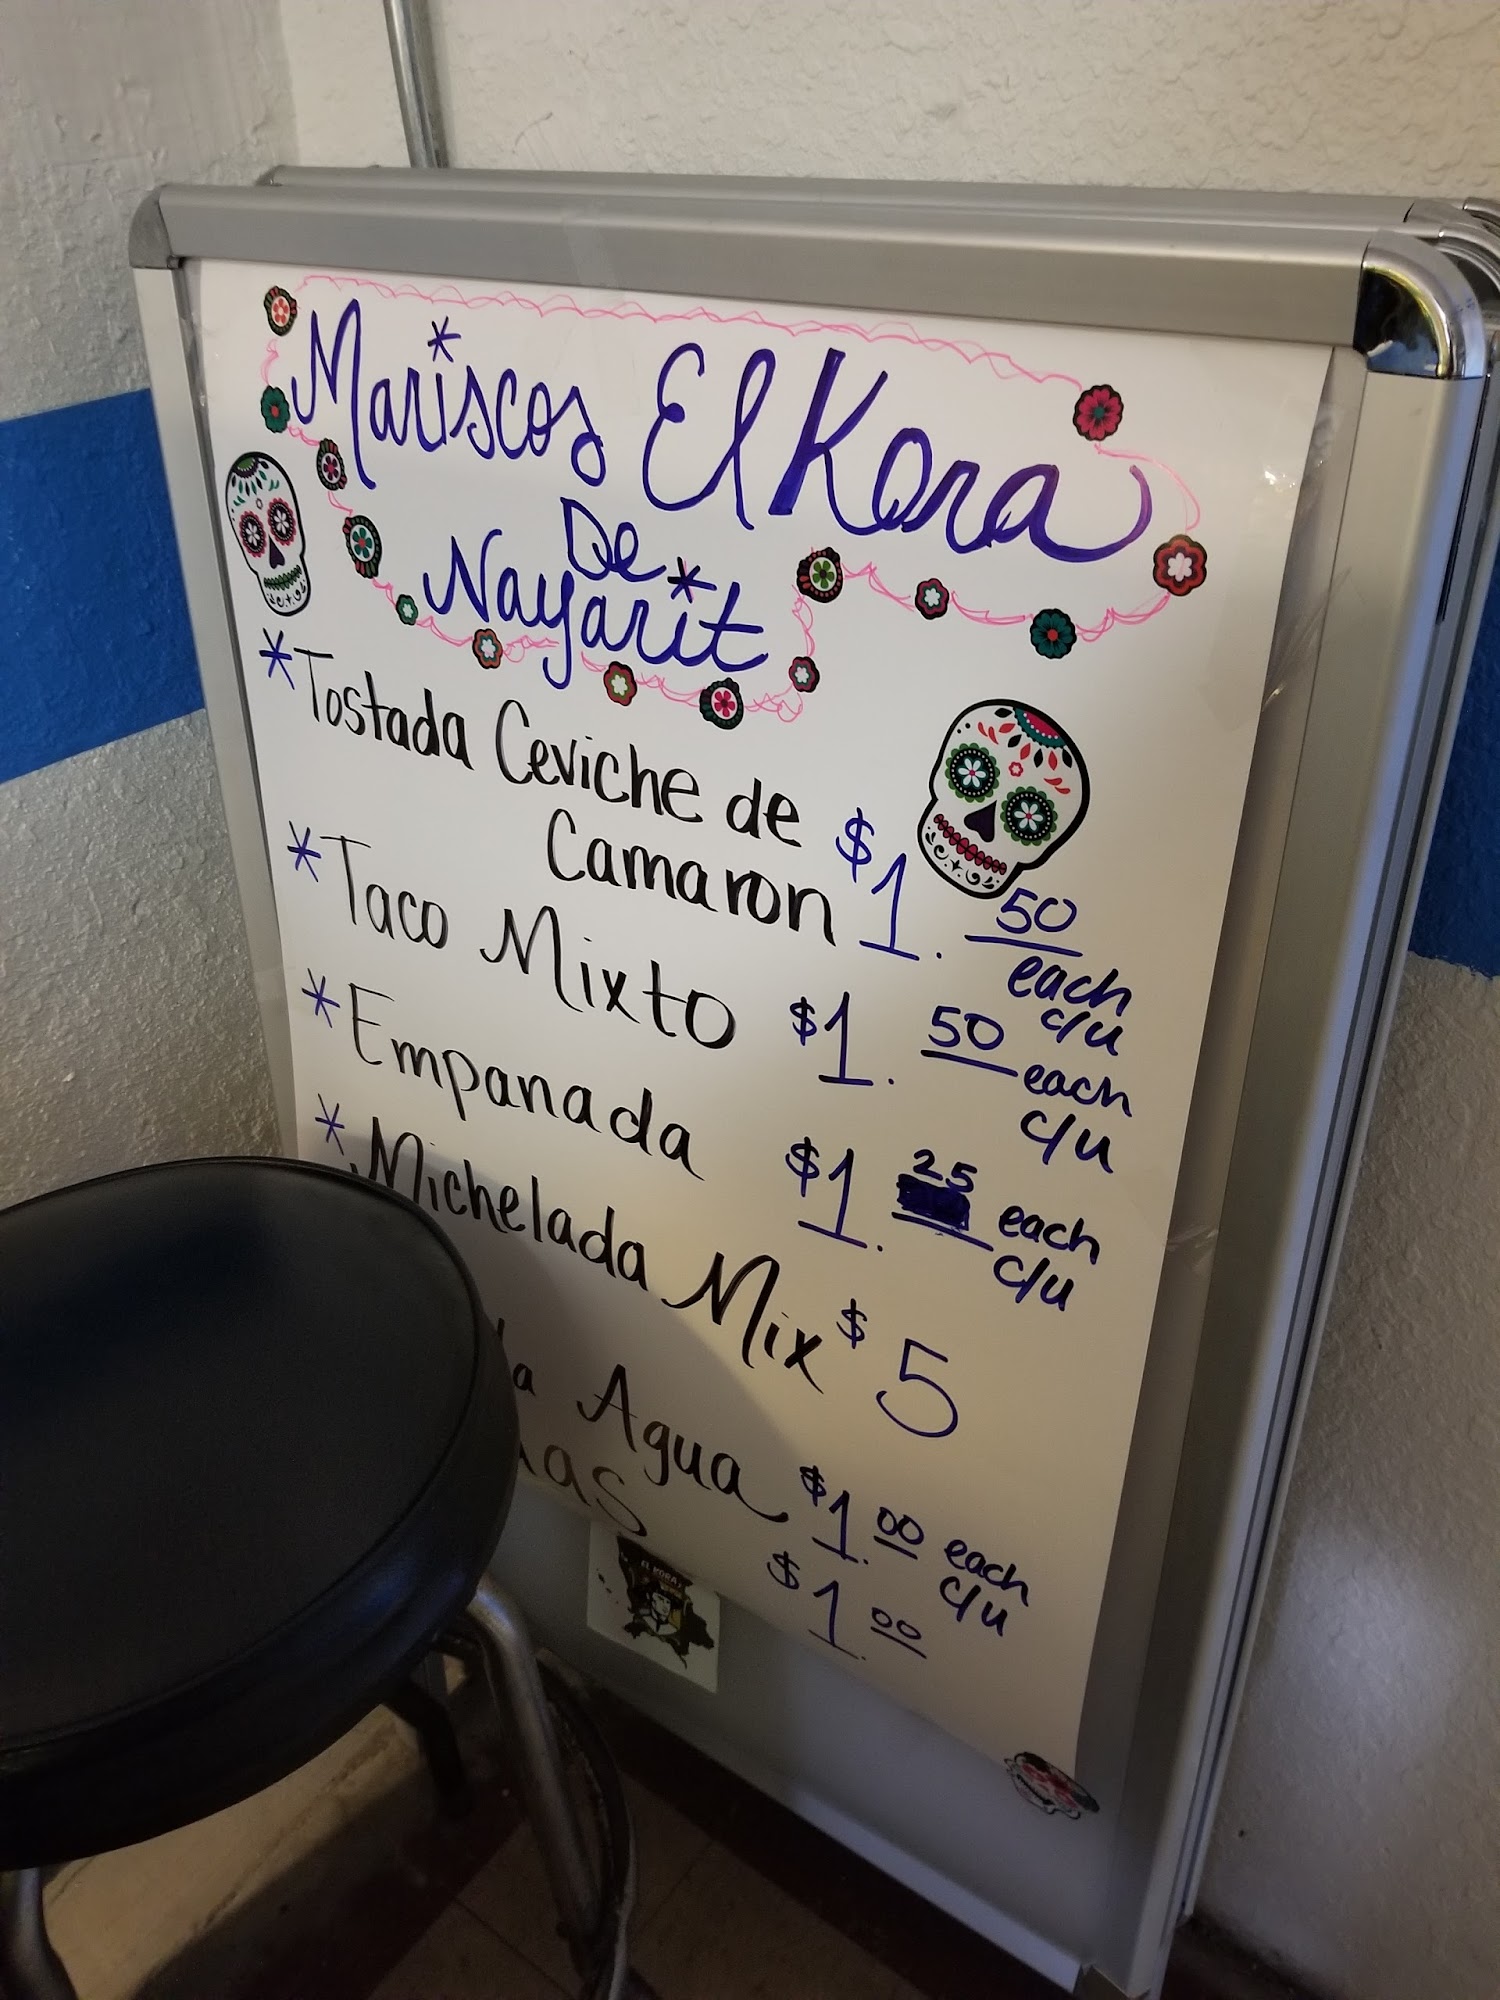 Mariscos El Kora
De
Nayarit
*Tostada Ceviche de
Camaron $1.50 each c/u
*Taco Mixto $1.50 each c/u
*Empanada $1.25 each c/u
*Michelada Mix $5
Agua $1.00 each c/u
$1.00
EL KORA